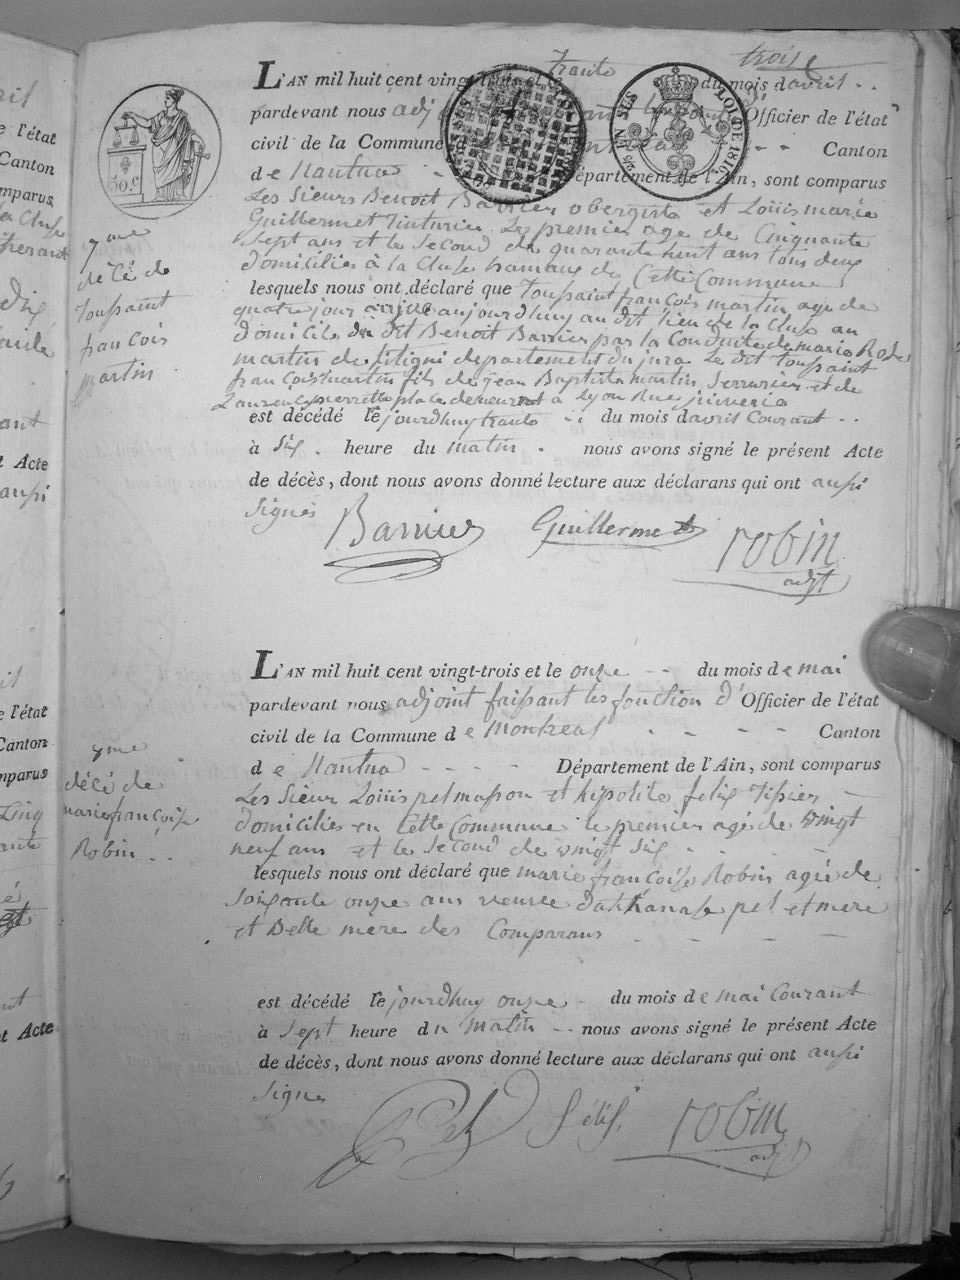 trois
L'AN mil huit cent vingt-trois et le trante du mois d'avril
pardevant nous adj Officier de l'état
civil de la Commune Canton
de Nantua Département de l'Ain, sont comparus
Les Sieurs Benoit Barrier obergiste et Louis marie
Guillermet Tinturier Le premier age de Cinquante
Sept ans et le Second de quarante huit ans tous deux
domiciliés à la Cluse hamaux de Cette Commune
lesquels nous ont déclaré que Toussaint françois martin age de
quatre jour arrivé aujourdhuy au dit lieu de la Cluse au
domicile du dit Benoit Barrier par la Conduite de marie Rose
martin de département du jura Le dit Toussaint
françois martin fils de jean Baptiste martin Serrurier et de
pierrette place demeurant à Lyon Rue juiverie
est décédé le jourdhuy trante du mois davril Courant
à Six heure du matin nous avons signé le présent Acte
de décès, dont nous avons donné lecture aux déclarans qui ont aussi
Signés
Barrier Guillermet robin
adjt
7me
décé de
Toussaint
françois
martin
50 c
LOI DE 1816
L'AN mil huit cent vingt-trois et le onze du mois de mai
pardevant nous adjoint faissant les fonction d'Officier de l'état
civil de la Commune de Montreal Canton
de Nantua Département de l'Ain, sont comparus
Les Sieur Louis pel masson et hipolite felix Tissier
domiciliés en Cette Commune le premier agé de vingt
neuf ans et le Second de vingt Six
lesquels nous ont déclaré que marie françoise Robin agée de
Soixante onze ans veuve dathanase pel et mere
et Belle mere des Comparans
est décédé le jourdhuy onze du mois de mai Courant
à Sept heure du Matin nous avons signé le présent Acte
de décès, dont nous avons donné lecture aux déclarans qui ont aussi
Signes
Pel robin
adjt
9me
décé de
marie françoise
Robin